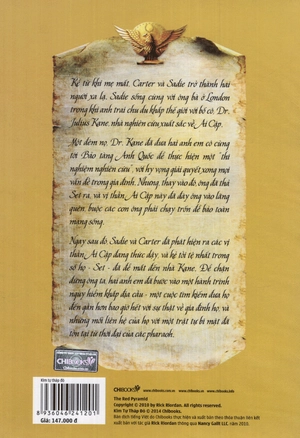 Kể từ khi mẹ mất, Carter và Sadie trở thành hai
người xa lạ. Sadie sống cùng với ông bà ở London
trong khi anh trai chu du khắp thế giới với bố cô, Dr.
Julius Kane, nhà nghiên cứu xuất sắc về Ai Cập.
Một đêm nọ, Dr. Kane đã đưa hai anh em cô cùng
tới Bảo tàng Anh Quốc để thực hiện một "thí
nghiệm nghiên cứu", với hy vọng giải quyết xong mọi
vấn đề trong gia đình. Nhưng, thay vào đó, ông đã thả
Set ra, và vị thần Ai Cập này đã đày ông vào lãng
quên, buộc các con ông phải chạy trốn để bảo toàn
mạng sống.
Ngay sau đó, Sadie và Carter đã phát hiện ra các vị
thần Ai Cập đang thức dậy, và kẻ tồi tệ nhất trong
số họ - Set - đã để mắt đến nhà Kane. Để chặn
đứng ông ta, hai anh em đã bước vào một hành trình
nguy hiểm khắp địa cầu - một cuộc tìm kiếm đưa họ
đến gần hơn bao giờ hết với sự thật về gia đình họ, và
những mối liên hệ của họ với một trật tự bí mật đã
tồn tại từ thời đại của các pharaoh.
CHIBOOKS
Kim tự tháp đỏ
8 936046 241201
Giá: 147.000 đ
CHIBOOKS
www.chibooks.vn
The Red Pyramid
Copyright © 2010 by Rick Riordan. All rights reserved.
Kim Tự Tháp Đỏ © 2014 Chibooks.
Bản dịch tiếng Việt do Chibooks thực hiện và xuất bản theo thỏa thuận liên kết
xuất bản với tác giả Rick Riordan thông qua Nancy Gallt LLC. năm 2010.